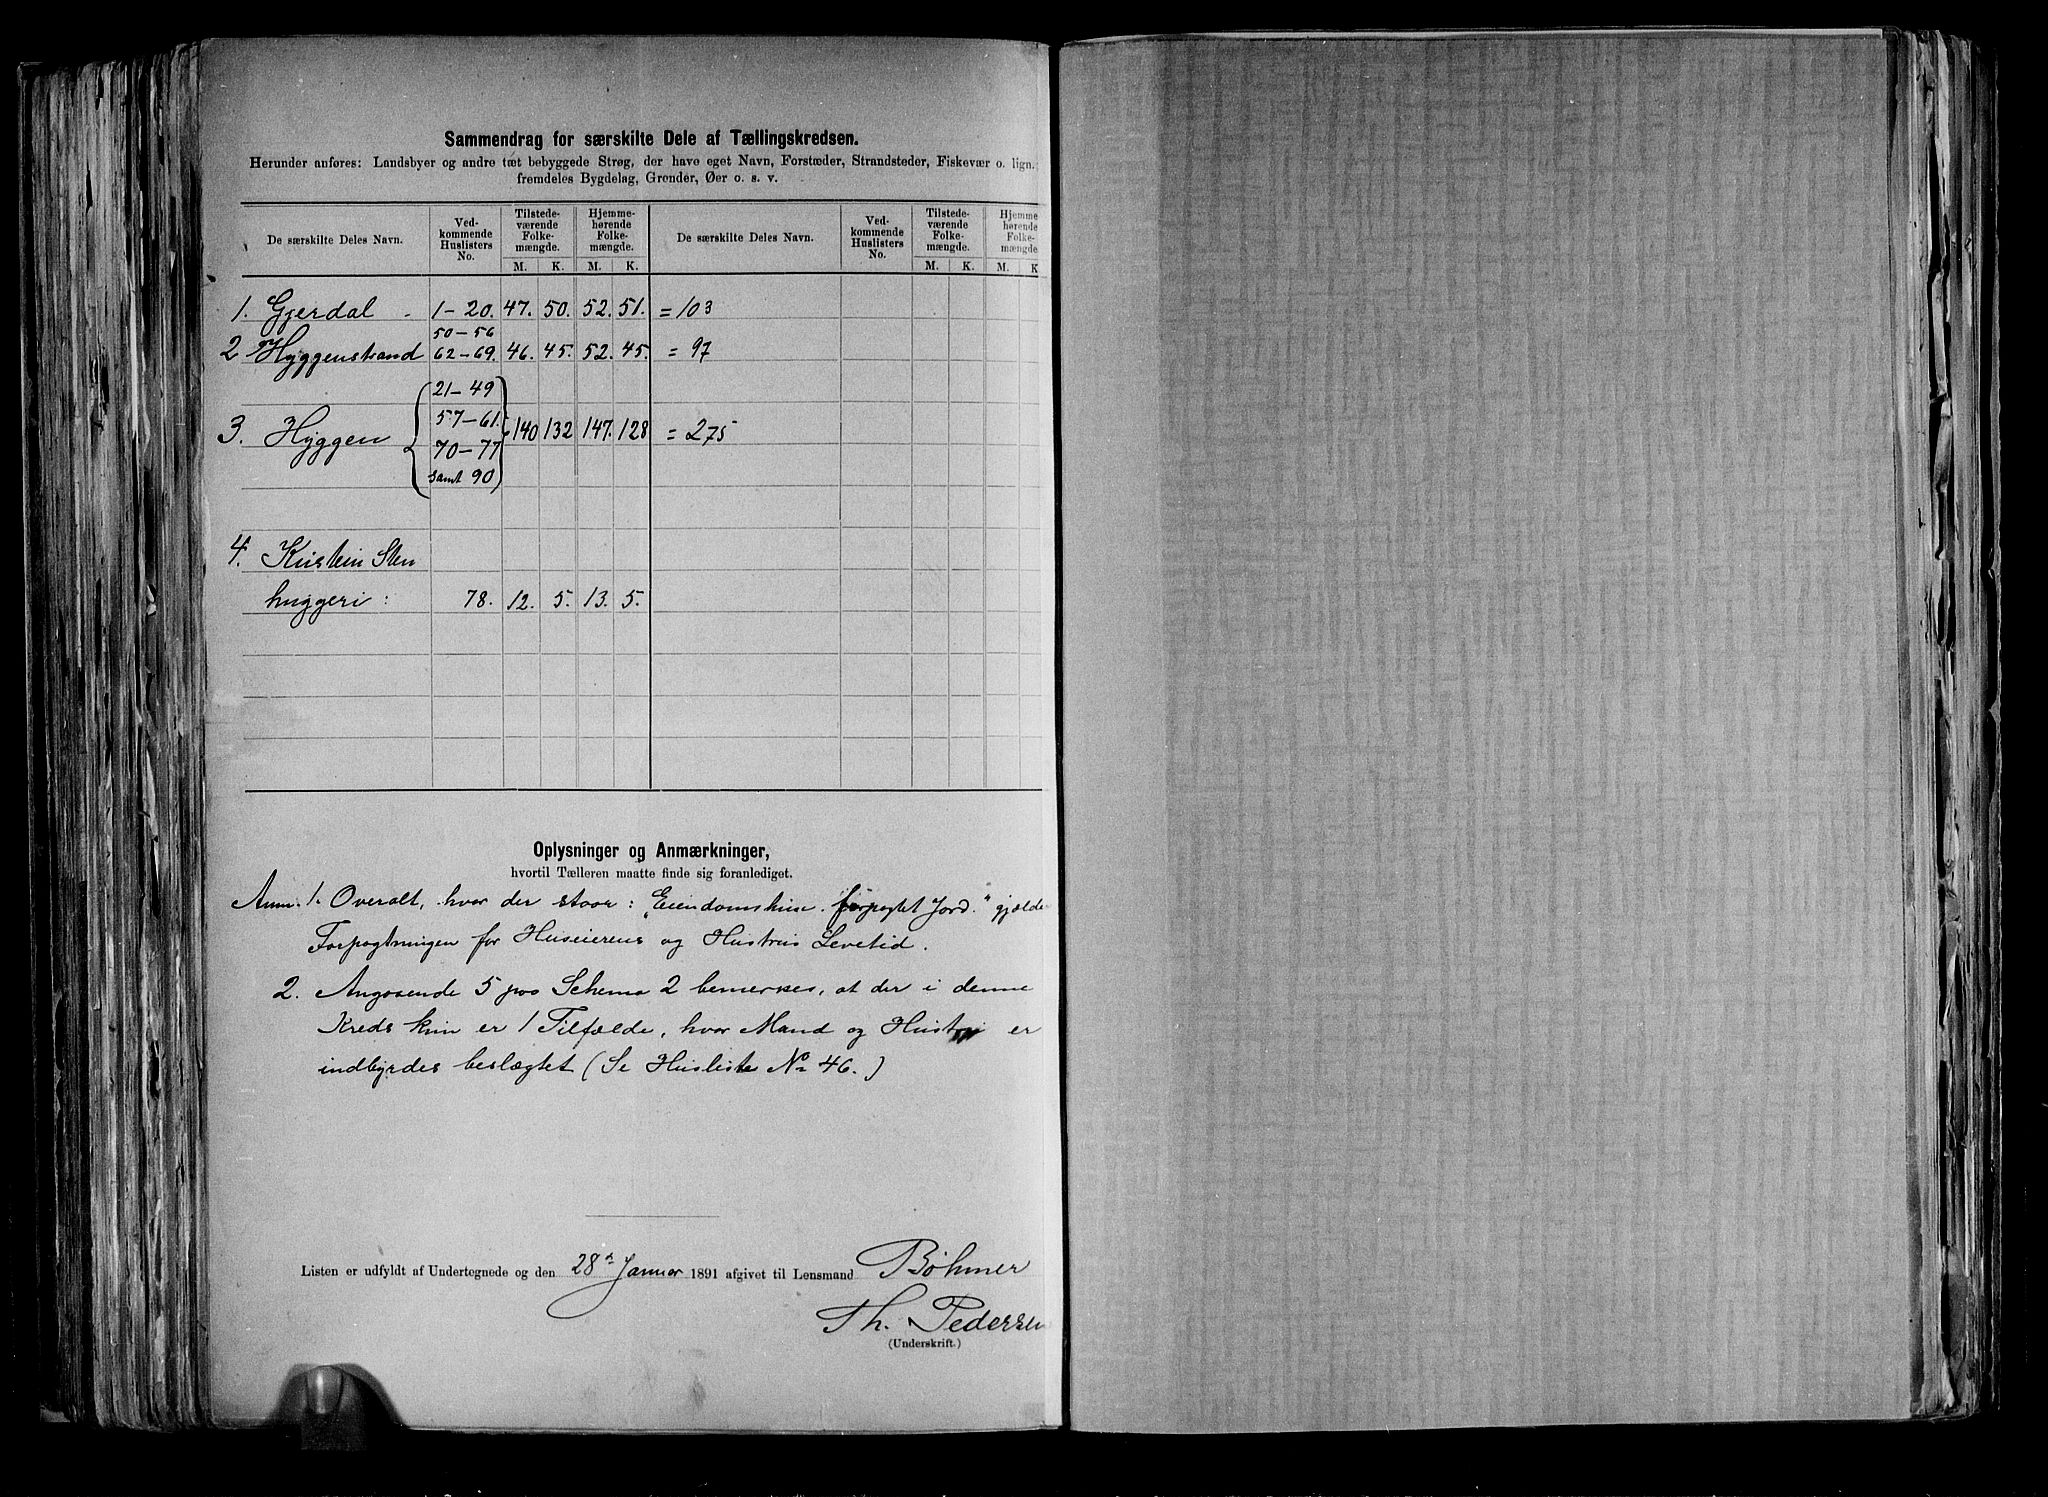 Sammendrag for særskilte Dele af Tællingskredsen.
Herunder anføres: Landsbyer og andre tæt bebyggede Strøg, der have eget Navn, Forstæder, Strandsteder, Fiskevær o. lign.;
fremdeles Bygdelag, Grender, Øer o. s. v.
De særskilte Deles Navn. Ved-kommende Huslisters No. Tilstede-værende Folke-mængde. Hjemme-hørende Folke-mængde. De særskilte Deles Navn. Ved-kommende Huslisters No. Tilstede-værende Folke-mængde. Hjemme-hørende Folke-mængde.
M. K. M. K. M. K. M. K
1. Gjerdal 1-20. 47. 50. 52. 51. = 103
50-56
2 Hyggenstrand 62-69. 46. 45. 52. 45. = 97
21-49
57-61.
3. Hyggen 140 132 147. 128 = 275
70-77
samt 90
4. Sten
huggeri: 78. 12. 5. 13. 5.
Oplysninger og Anmærkninger,
hvortil Tælleren maatte finde sig foranlediget.
Anm. 1. Overalt, hvor der staar: „Eiendomshus forpagtet Jord." gjælde
Forpagtningen for Huseierens og Hustrus Levetid.
2. Angaaende 5 paa Schema 2 bemerkes, at der i denne
Kreds kun er 1 Tilfælde, hvor Mand og Hustru er
indbyrdes beslægtet (Se Husliste No 46.)
Listen er udfyldt af Undertegnede og den 28de Januar 1891 afgivet til Lensmand Bøhmer
Th. Pedersen
(Underskrift.)